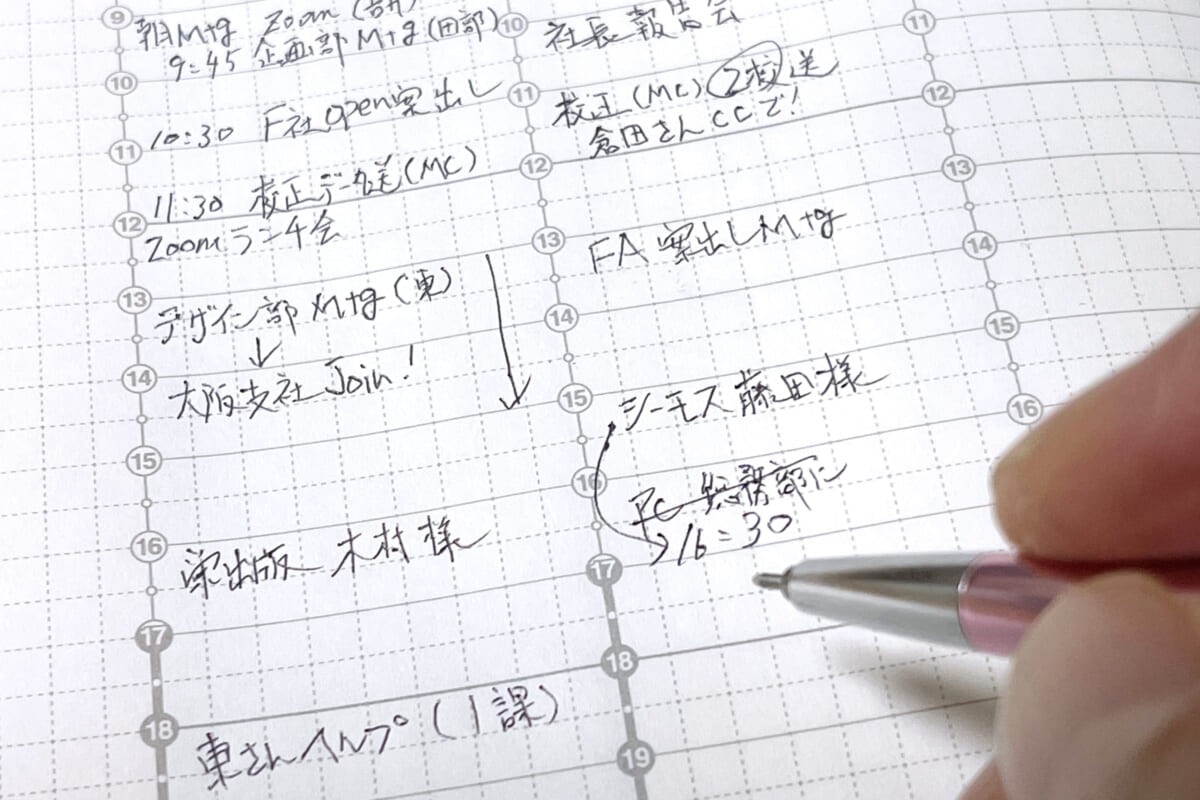 9
朝Mtg Zoom(吉川)
9:45 企画部Mtg(田部)
10
10:30 F社open案出し
11
11:30 校正データ送(MC)
12
Zoomランチ会
13
デザイン部Mtg(東)
↓
14
大阪支社Join!
15
16
栄出版 木村様
17
18
東さんヘルプ(1課)
10
社長報告会
11
校正(MC)2校送
倉田さんCCで!
12
13
FA案出しMtg
14
15
シーモス藤田様
16
PC 総務部に
16:30
17
18
19
11
12
13
14
15
16